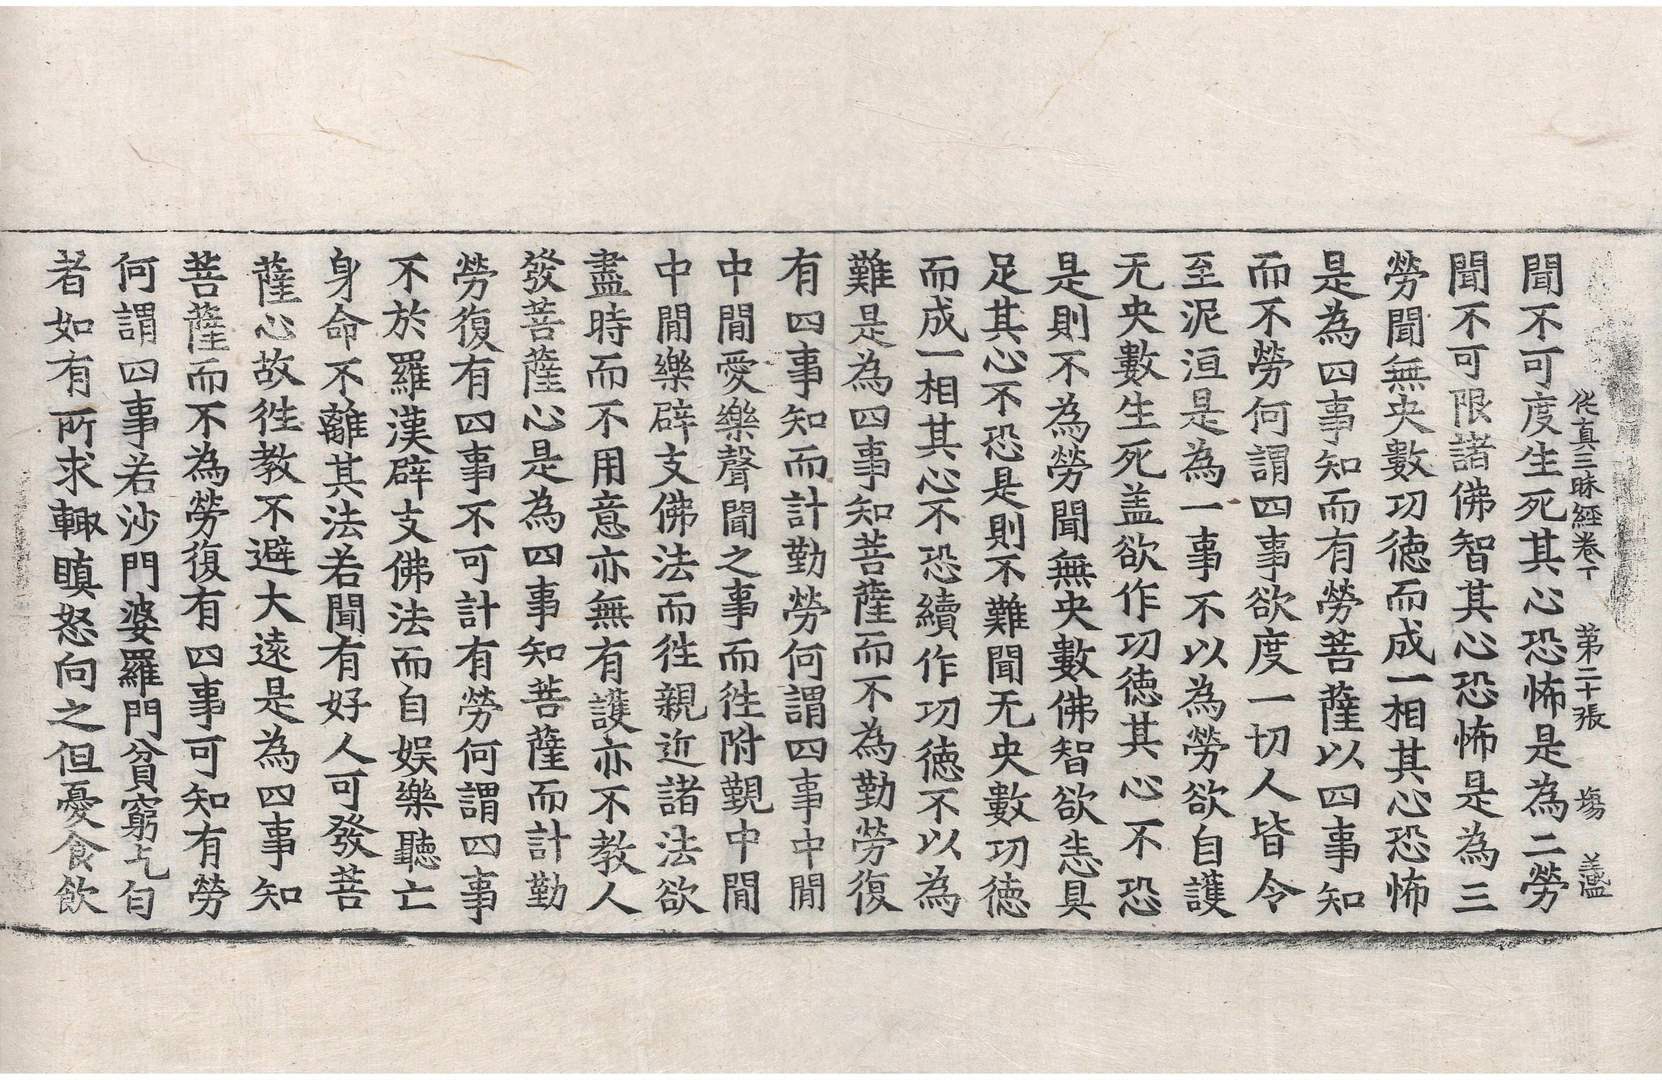 伅真三昧經卷下 第二十張 塲 盖溫
聞不可度生死其心恐怖是為二勞
聞不可限諸佛智其心恐怖是為三
勞聞無央數功德而成一相其心恐怖
是為四事知而有勞菩薩以四事知
而不勞何謂四事欲度一切人皆令
至泥洹是為一事不以為勞欲自護
无央數生死盖欲作功德其心不恐
是則不為勞聞無央數佛智欲恚具
足其心不恐是則不難聞无央數功德
而成一相其心不恐續作功德不以為
難是為四事知菩薩而不為勤勞復
有四事知而計勤勞何謂四事中閒
中閒愛樂聲聞之事而徃附觀中閒
中閒樂辟支佛法而徃親近諸法欲
盡時而不用意亦無有護亦不教人
發菩薩心是為四事知菩薩而計勤
勞復有四事不可計有勞何謂四事
不於羅漢辟支佛法而自娛樂聽亡
身命不離其法若聞有好人可發菩
薩心故徃教不避大遠是為四事知
菩薩而不為勞復有四事可知有勞
何謂四事若沙門婆羅門貧窮乞匄
者如有所求輙瞋怒向之但憂食飲